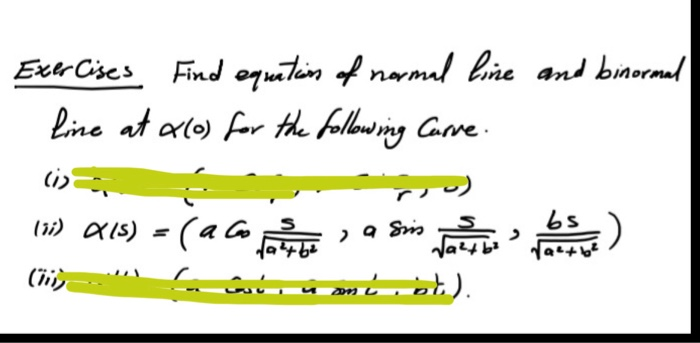 Exercises Find equation of normal line and binormal
line at α(0) for the following Curve.
(i)
(ii) α(s) = (a Cos s/√a²+b² , a Sin s/√a²+b² , bs/√a²+b²)
(iii)